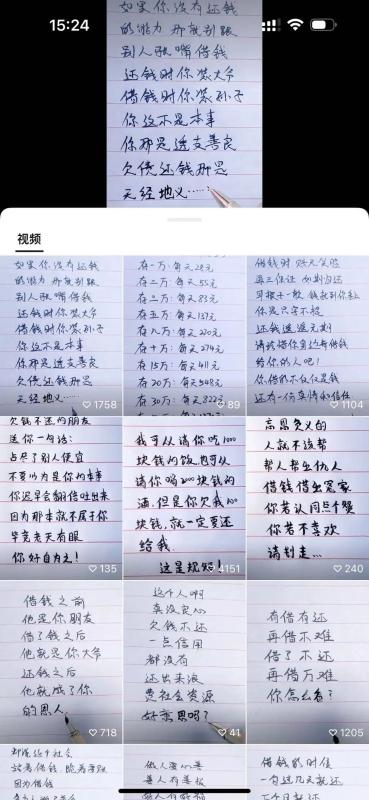 15:24
如果你没有还钱
的能力 那就别跟
别人张嘴借钱
还钱时你装大爷
借钱时你装孙子
你这不是本事
你那是透支善良
欠债还钱那是
天经地义……
视频
如果你没有还钱
的能力 那就别跟
别人张嘴借钱
还钱时你装大爷
借钱时你装孙子
你这不是本事
你那是透支善良
欠债还钱那是
天经地义……
1758
存一万:每天28元
存二万:每天55元
存三万:每天83元
存五万:每天137元
存八万:每天220元
存十万:每天274元
存15万:每天411元
存20万:每天548元
存30万:每天822元
89
借钱时
再三保证 如期归还
你是只字不提
给你的人吧!
你借的不仅仅是钱
还有一份真情和信任
1104
欠钱不还的朋友
送你一句话:
占尽了别人便宜
不要以为是你的本事
你迟早会翻倍吐出来
因为那本就不属于你
毕竟老天有眼
你好自为之!
135
我可以请你吃1000
块钱的饭,也可以
请你喝2000块钱的
酒,但是你欠我100
块钱,就一定要还
给我.
这是规矩!
4151
忘恩负义的
人就不该帮
帮人帮出仇人
借钱借出冤家
你若认同点个赞
你若不喜欢
请划走…
240
借钱之前
他是你朋友
借了钱之后
他就是你大爷
还钱之后
他就成了你
的恩人.
718
这个人啊
真没良心
欠钱不还
一点信用
都没有
还出来浪
费社会资源
好意思吗?
41
有借有还
再借不难
借了不还
再借万难
你怎么看?
1205
因为借钱
做人要心善
善人有善报
借钱的时候
一句过几天就还